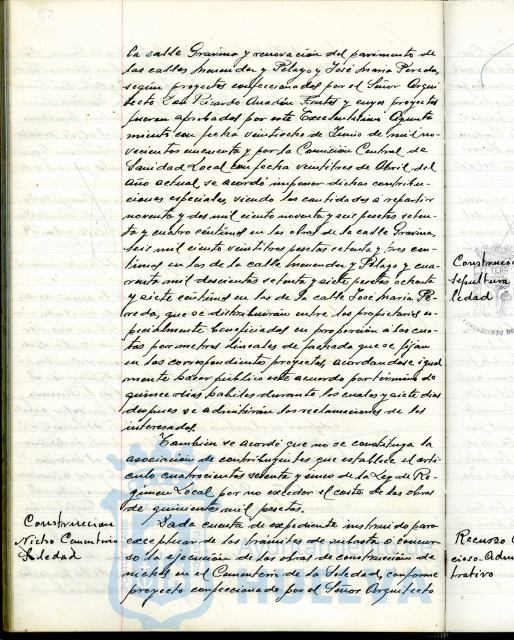 la calle Gravina y renovación del pavimento de
las calles Menendez y Pelayo y José Maria Pereda,
según proyectos confeccionados por el Señor Arqui
tecto Don Ricardo Anadón Frutos y cuyos proyectos
fueron aprobados por este Excelentisimo Ayunta
miento con fecha veintiocho de Junio de mil no-
vecientos cincuenta y por la Comisión Central de
Sanidad Local con fecha veintitres de Abril del
año actual, se acordó imponer dichas contribu-
ciones especiales siendo las cantidades a repartir
noventa y dos mil ciento noventa y seis pesetas seten-
ta y cuatro centimos en las obras de la calle Gravina,
seis mil ciento veintitres pesetas setenta y tres cen-
timos en las de la calle Menendez y Pelayo y cua-
renta mil doscientas setenta y siete pesetas ochenta
y siete centimos en las de la calle José Maria Pe-
reda, que se distribuirán entre los propietarios es-
pecialmente beneficiados en proporción a las cuo-
tas por metros lineales de fachada que se fijan
en los correspondientes proyectos, acordandose igual
mente hacer público este acuerdo por término de
quince dias habiles durante los cuales y siete dias
despues se admitirán las reclamaciones de los
interesados.
Tambien se acordó que no se constituya la
asociación de contribuyentes que establece el arti-
culo cuatrocientos sesenta y cinco de la Ley de Re-
gimen Local por no exceder el coste de las obras
de quinientas mil pesetas.
Construccion
Nichos Cementerio
Soledad
Dada cuenta de expediente instruido para
exceptuar de los trámites de subasta o concur-
so la ejecución de las obras de construcción de
nichos en el Cementerio de la Soledad, conforme
proyecto confeccionado por el Señor Arquitecto
Construcció
Sepultura
ledad
Recurso
cioso-Admi
trativo
HUELVA